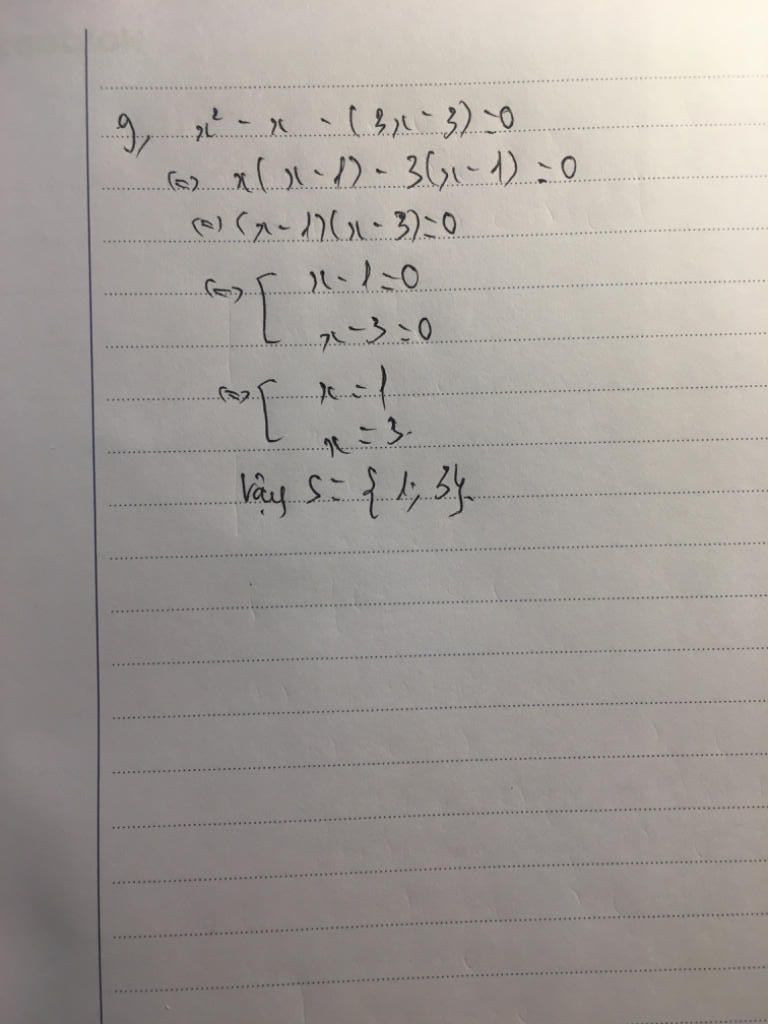 g, x² - x - (3x - 3) = 0
<=> x(x - 1) - 3(x - 1) = 0
<=> (x - 1)(x - 3) = 0
<=> [ x - 1 = 0
x - 3 = 0
<=> [ x = 1
x = 3.
Vậy S = { 1; 3}.